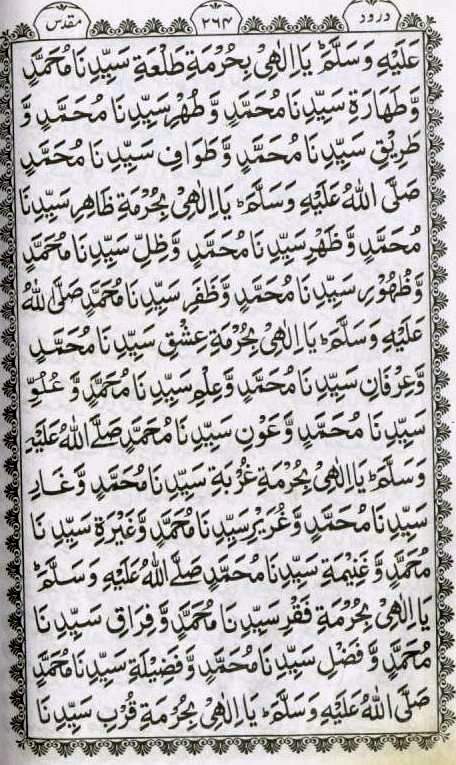 درود ۲۶۴ مقدس
عَلَيْهِ وَسَلَّمَ ؕ يَا اِلٰهِيْ بِحُرْمَةِ طَلْعَةِ سَيِّدِنَا مُحَمَّدٍ
وَّ طَهَارَةِ سَيِّدِنَا مُحَمَّدٍ وَّ طُهْرِ سَيِّدِنَا مُحَمَّدٍ وَّ
طَرِيْقِ سَيِّدِنَا مُحَمَّدٍ وَّ طَوَافِ سَيِّدِنَا مُحَمَّدٍ
صَلَّى اللهُ عَلَيْهِ وَسَلَّمَ ؕ يَا اِلٰهِيْ بِحُرْمَةِ ظَاهِرِ سَيِّدِنَا
مُحَمَّدٍ وَّ ظَهْرِ سَيِّدِنَا مُحَمَّدٍ وَّ ظِلِّ سَيِّدِنَا مُحَمَّدٍ
وَّ ظُهُوْرِ سَيِّدِنَا مُحَمَّدٍ وَّ ظَفَرِ سَيِّدِنَا مُحَمَّدٍ صَلَّى اللهُ
عَلَيْهِ وَسَلَّمَ ؕ يَا اِلٰهِيْ بِحُرْمَةِ عِشْقِ سَيِّدِنَا مُحَمَّدٍ
وَّ عِرْفَانِ سَيِّدِنَا مُحَمَّدٍ وَّ عِلْمِ سَيِّدِنَا مُحَمَّدٍ وَّ عُلُوِّ
سَيِّدِنَا مُحَمَّدٍ وَّ عَوْنِ سَيِّدِنَا مُحَمَّدٍ صَلَّے اللهُ عَلَيْهِ
وَسَلَّمَ ؕ يَا اِلٰهِيْ بِحُرْمَةِ غُرْبَةِ سَيِّدِنَا مُحَمَّدٍ وَّ غَارِ
سَيِّدِنَا مُحَمَّدٍ وَّ غُرَيْرِ سَيِّدِنَا مُحَمَّدٍ وَّ غَيْرَةِ سَيِّدِنَا
مُحَمَّدٍ وَّ غَنِيْمَةِ سَيِّدِنَا مُحَمَّدٍ صَلَّے اللهُ عَلَيْهِ وَسَلَّمَ ؕ
يَا اِلٰهِيْ بِحُرْمَةِ فَقْرِ سَيِّدِنَا مُحَمَّدٍ وَّ فِرَاقِ سَيِّدِنَا
مُحَمَّدٍ وَّ فَضْلِ سَيِّدِنَا مُحَمَّدٍ وَّ فَضِيْلَةِ سَيِّدِنَا مُحَمَّدٍ
صَلَّى اللهُ عَلَيْهِ وَسَلَّمَ ؕ يَا اِلٰهِيْ بِحُرْمَةِ قُرْبِ سَيِّدِنَا